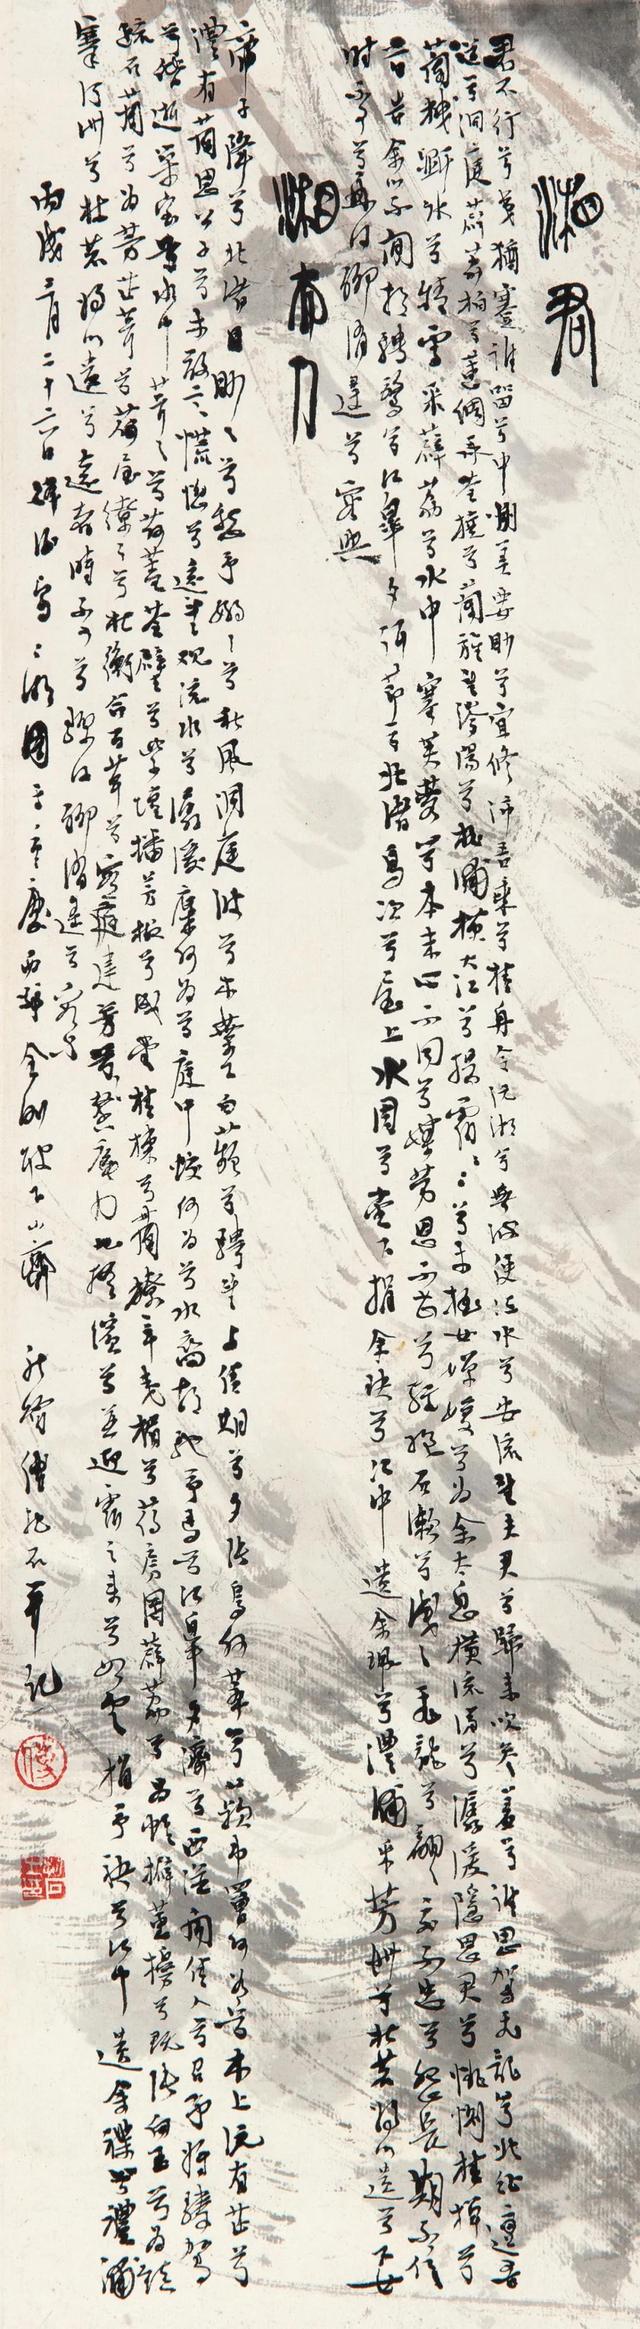 湘君
君不行兮夷猶蹇誰留兮中洲美要眇兮宜修沛吾乘兮桂舟令沅湘兮無波使江水兮安流望夫君兮歸來吹參差兮誰思駕飛龍兮北征邅吾
道兮洞庭薜荔柏兮蕙綢荃橈兮蘭旌望涔陽兮極浦橫大江兮揚靈ミミ兮未極女嬋媛兮為余太息橫流涕兮潺湲隱思君兮悱惻桂櫂兮
蘭枻斲冰兮積雪采薜荔兮水中搴芙蓉兮木末心不同兮媒勞恩不甚兮輕絕石瀨兮淺ミ飛龍兮翩ミ交不忠兮怨長期不信
兮告余以不閒朝騁騖兮江皋夕弭節兮北渚鳥次兮屋上水周兮堂下捐余玦兮江中遺余珮兮澧浦采芳洲兮杜若將以遺兮下女
時不可兮再得聊逍遙兮容與
湘夫人
帝子降兮北渚目眇ミ兮愁予嫋ミ兮秋風洞庭波兮木葉下白薠兮騁望與佳期兮夕張鳥何萃兮蘋中罾何為兮木上沅有茝兮
澧有蘭思公子兮未敢言慌惚兮遠望觀流水兮潺湲麋何為兮庭中蛟何為兮水裔朝馳予馬兮江皋夕濟兮西澨聞佳人兮召予將騰駕
兮偕逝築室兮水中葺之兮荷蓋荃壁兮紫壇播芳椒兮成堂桂棟兮蘭橑辛夷楣兮葯房罔薜荔兮為帷擗蕙櫋兮既張白玉兮為鎮
疏石蘭兮為芳芷葺兮荷屋繚之兮杜衡合百草兮實庭建芳馨兮廡門九嶷繽兮並迎靈之來兮如雲捐予袂兮江中遺余褋兮澧浦
搴汀洲兮杜若將以遺兮遠者時不可兮驟得聊逍遙兮容與
丙戌三月二十六日寫二湘圖于重慶西郊金剛坡下山齋 新喻傅抱石并記
傅